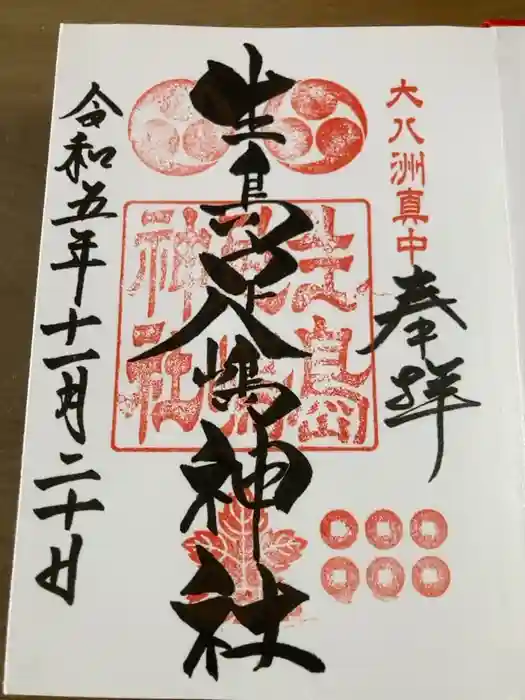 大八洲真中
奉拝
生島足島神社
生島足島神社
令和五年十一月二十日